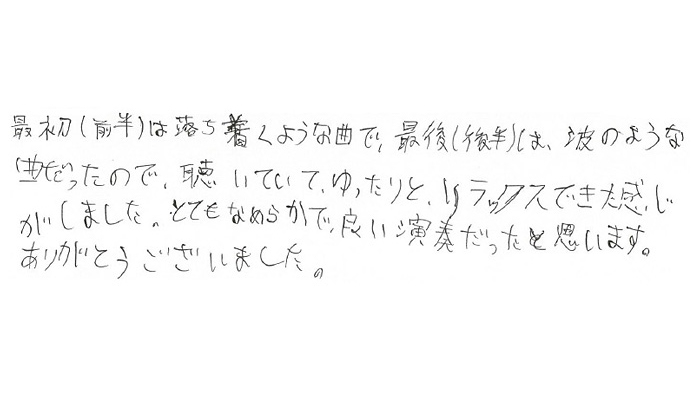 最初(前半)は落ち着くような曲で、最後(後半)は、波のような
曲だったので、聴いていて、ゆったりと、リラックスできた感じ
がしました。とてもなめらかで、良い演奏だったと思います。
ありがとうございました。